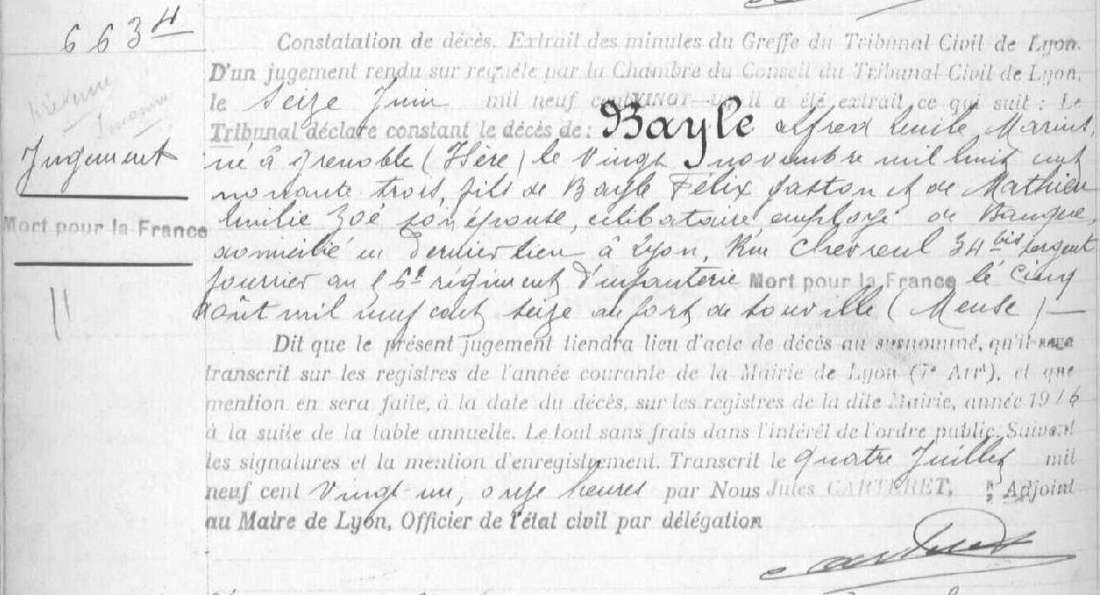 6634
Jugement
Mort pour la France
Constatation de décès. Extrait des minutes du Greffe du Tribunal Civil de Lyon.
D'un jugement rendu sur requête par la Chambre du Conseil du Tribunal Civil de Lyon,
le Seize Juin mil neuf cent VINGT-UN il a été extrait ce qui suit : Le
Tribunal déclare constant le décès de : Bayle Alfred Emile Marius,
né à Grenoble (Isère) le Vingt novembre mil huit cent
nonante trois, fils de Bayle Félix Gaston et de Mathieu
Emilie Zoé son épouse, célibataire employé de Banque,
domicilié en dernier lieu à Lyon, Rue Chevreul 34 bis Sergent
fourrier au 6e régiment d'infanterie Mort pour la France le Cinq
Août mil neuf cent seize au fort de Souville (Meuse) —
Dit que le présent jugement tiendra lieu d'acte de décès au susnommé, qu'il sera
transcrit sur les registres de l'année courante de la Mairie de Lyon (7e Arrt), et que
mention en sera faite, à la date du décès, sur les registres de la dite Mairie, année 1916
à la suite de la table annuelle. Le tout sans frais dans l'intérêt de l'ordre public. Suivent
les signatures et la mention d'enregistrement. Transcrit le quatre Juillet mil
neuf cent Vingt-un, onze heures par Nous Jules CARTERET, Adjoint
au Maire de Lyon, Officier de l'état civil par délégation